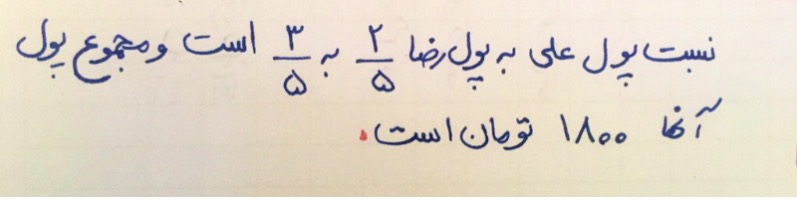 نسبت پول علی به پول رضا ۲/۵ به ۳/۵ است و مجموع پول
آنها ۱۸۰۰ تومان است.